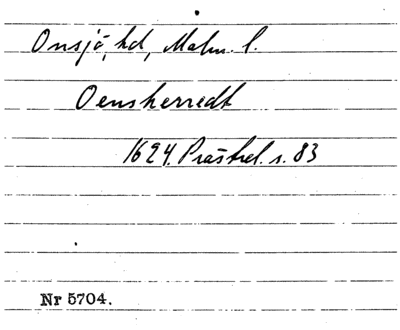 Onsjö, hd, Malm. l.
Oensherredt
1624. Prästrel. s. 83
Nr 5704.